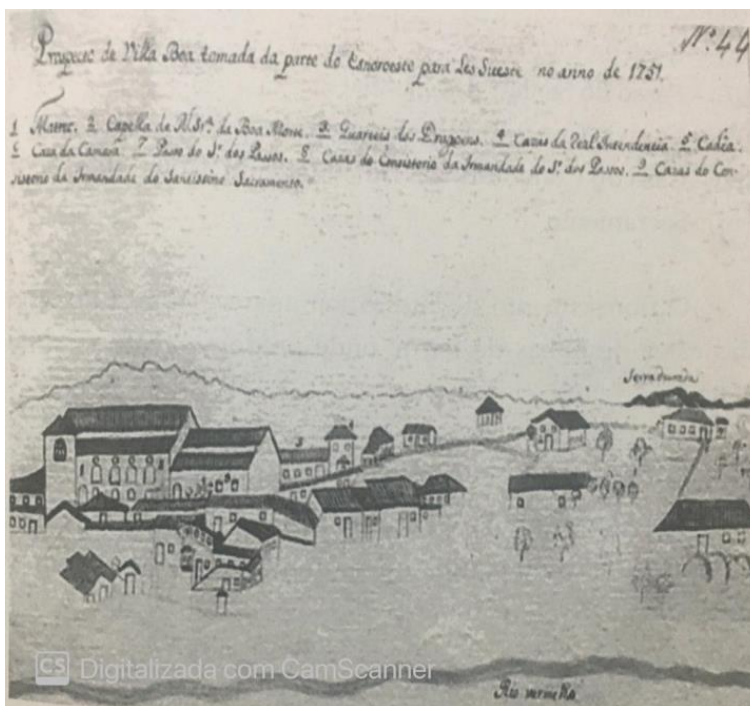 Nº 44
Prospecto de Villa Boa tomada da parte do para Les Sueste no anno de 1751.
1 Matriz. 2 Capella da N. Srª. da Boa Morte. 3 Quarteis dos Dragoens. 4 Cazas da Real Intendencia. 5 Cadêa.
6 Caza da Camara 7 Passo do Sr. dos Passos. 8 Cazas do Consistorio da Irmandade do Sr. dos Passos. 9 Cazas do Con-
sistorio da Irmandade do Santissimo Sacramento.
Serra dourada
3
CS Digitalizada com CamScanner
Rio vermelho